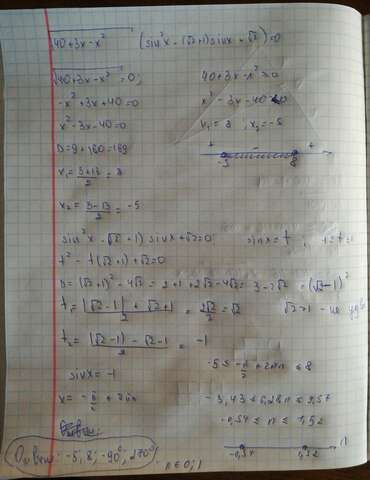 √40+3x-x² (sin²x-(√2+1)sinx+√2)=0
√40+3x-x² =0;
40+3x-x²≥0
-x²+3x+40=0
x²-3x-40≤0
x²-3x-40=0
x₁=8, x₂=-5
D=9+160=169
+ - +
-5 8
x₁=3+13/2=8
x₂=3-13/2=-5
sin²x-(√2+1)sinx+√2=0
sinx=t,
t²-t(√2+1)+√2=0
D=(√2+1)²-4√2=2+1+2√2-4√2=3-2√2=(√2-1)²
t₁=|√2-1|+√2+1/2=2√2/2=√2
√2>1-не
t₂=|√2-1|-√2-1/2=-1
-5≤-π/2+2πn≤8
sinx=-1
x=-π/2+2πn
-3,43≤6,28n≤9,57
-0,54≤n≤1,52
Ответ: -5, 8; -90°, 270°.
n∈0;1
-0,54 1,52